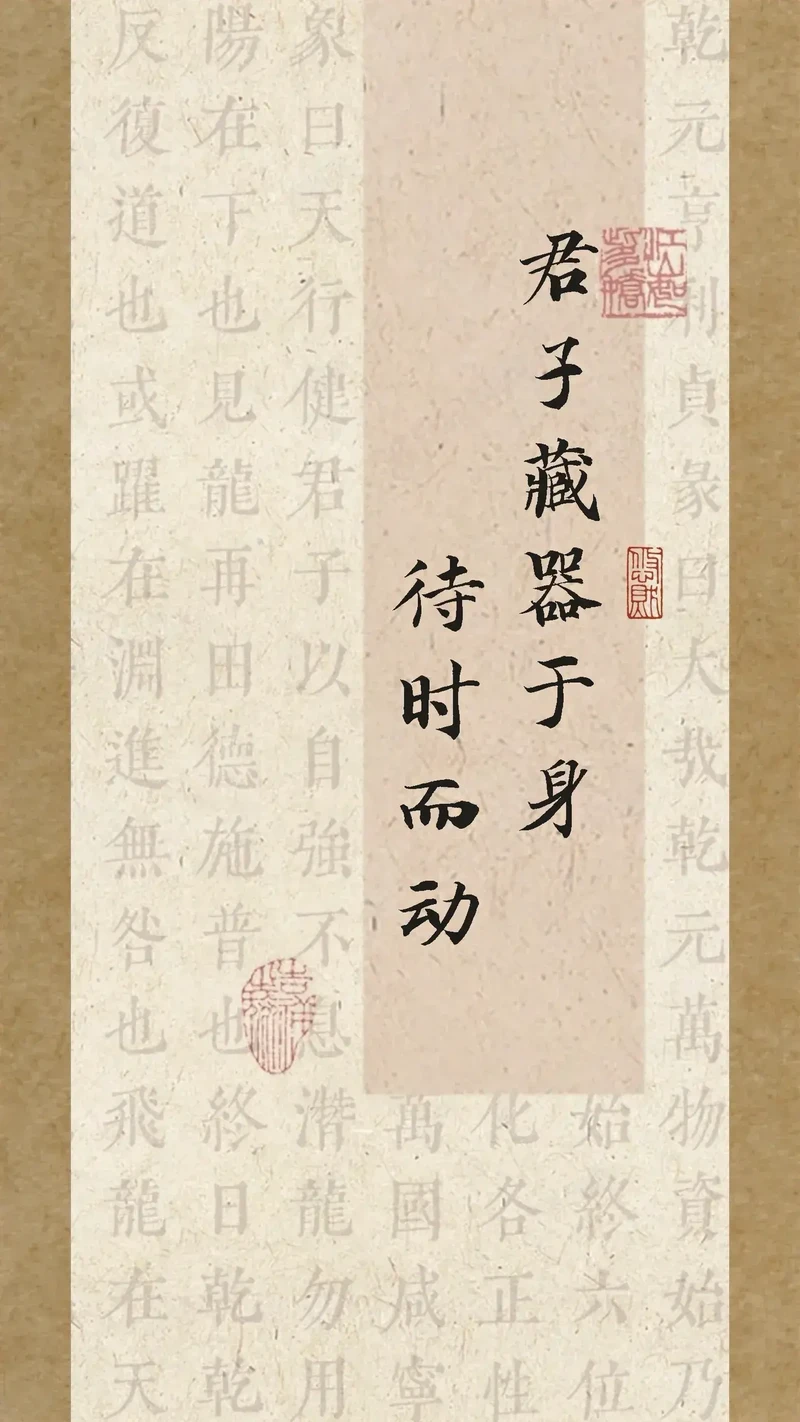 君子藏器于身
待时而动
乾元亨利貞彖曰大哉乾元萬物資始乃
始終六位
化各正性
萬國咸寧
象曰天行健君子以自強不息潛龍勿用
陽在下也見龍再田德施普也終日乾乾
反復道也或躍在淵進無咎也飛龍在天